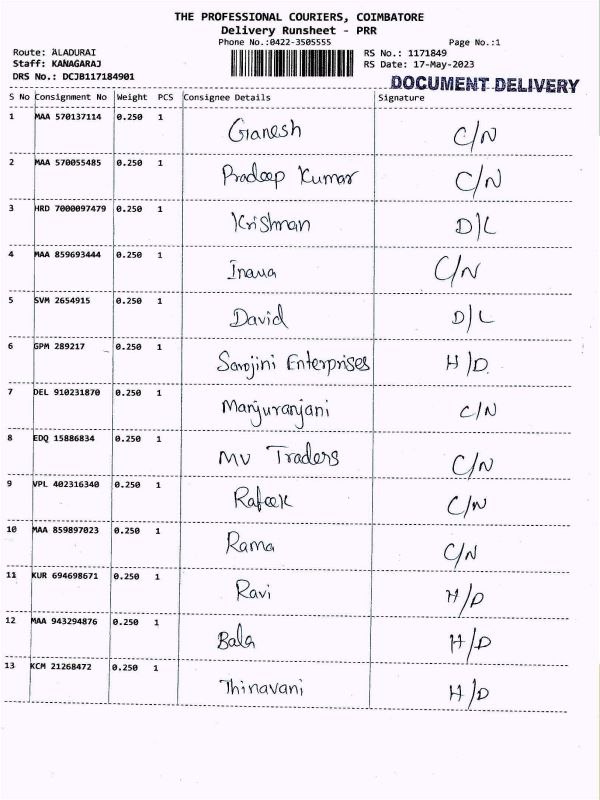 THE PROFESSIONAL COURIERS, COIMBATORE
Delivery Runsheet - PRR
Phone No.:0422-3505555 Page No.:1
Route: ALADURAI RS No.: 1171849
Staff: KANAGARAJ RS Date: 17-May-2023
DRS No.: DCJB117184901 DOCUMENT DELIVERY
S No Consignment No Weight PCS Consignee Details Signature
1 MAA 570137114 0.250 1 Ganesh C/N
2 MAA 570055485 0.250 1 Pradeep Kumar C/N
3 HRD 7000097479 0.250 1 Krishnan D/L
4 MAA 859693444 0.250 1 C/N
5 SVM 2654915 0.250 1 David D/L
6 GPM 289217 0.250 1 Sarojini Enterprises H/D
7 DEL 910231870 0.250 1 Manjuranjani C/N
8 EDQ 15886834 0.250 1 MV Traders C/N
9 VPL 402316340 0.250 1 Rafeek C/N
10 MAA 859897023 0.250 1 Rama C/N
11 KUR 694698671 0.250 1 Ravi H/D
12 MAA 943294876 0.250 1 Bala H/D
13 KCM 21268472 0.250 1 Thinavani H/D